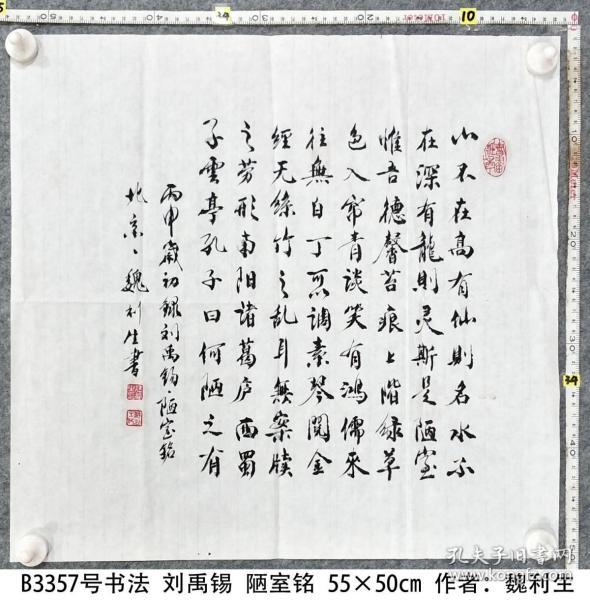 山不在高有仙則名水不
在深有龍則灵斯是陋室
惟吾德馨苔痕上階緑草
色入帘青談笑有鴻儒來
往無白丁可以調素琴閱金
經无絲竹之乱耳無案牘
之劳形南阳諸葛庐西蜀
子雲亭孔子曰何陋之有
丙申歲初録刘禹錫·陋室銘
北京、魏利生書
孔夫子旧书网
B3357号书法 刘禹锡 陋室铭 55×50cm 作者：魏利生